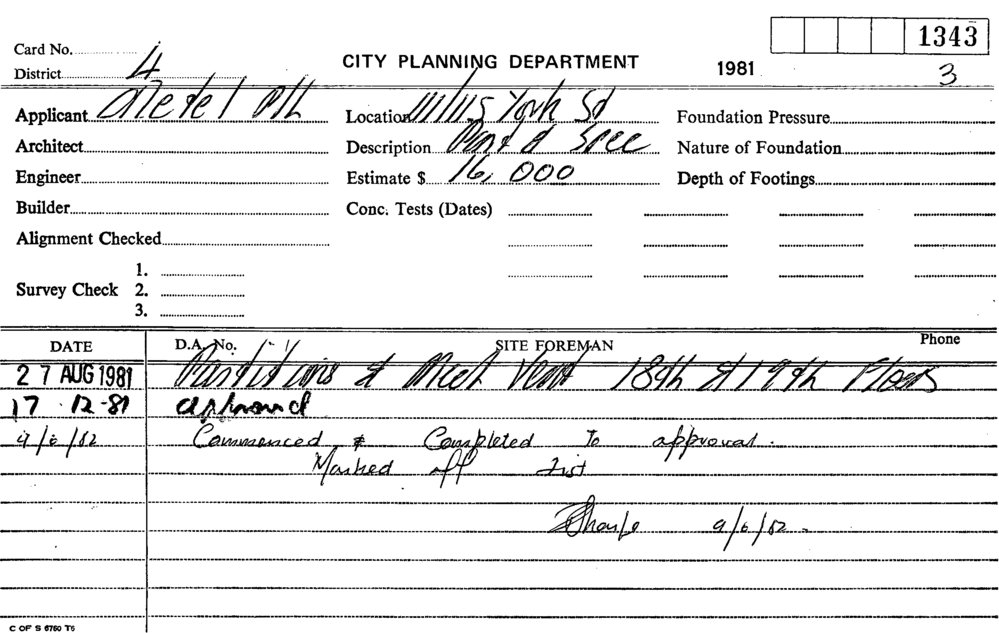 1343
Card No.
District 4
CITY PLANNING DEPARTMENT
1981
3
Applicant
Location 111/115 York St
Foundation Pressure
Architect
Description Part d Spec
Nature of Foundation
Engineer
Estimate $ 16,000
Depth of Footings
Builder
Conc. Tests (Dates)
Alignment Checked
Survey Check
1.
2.
3.
DATE
D.A. No.
SITE FOREMAN
Phone
27 AUG 1981 Partitions & Mech Vent 18th & 19th Floors
17 12-81 approved
9/6/82 Commenced & Completed to approval.
Marked off list
9/6/82
C OF S 6760 T5